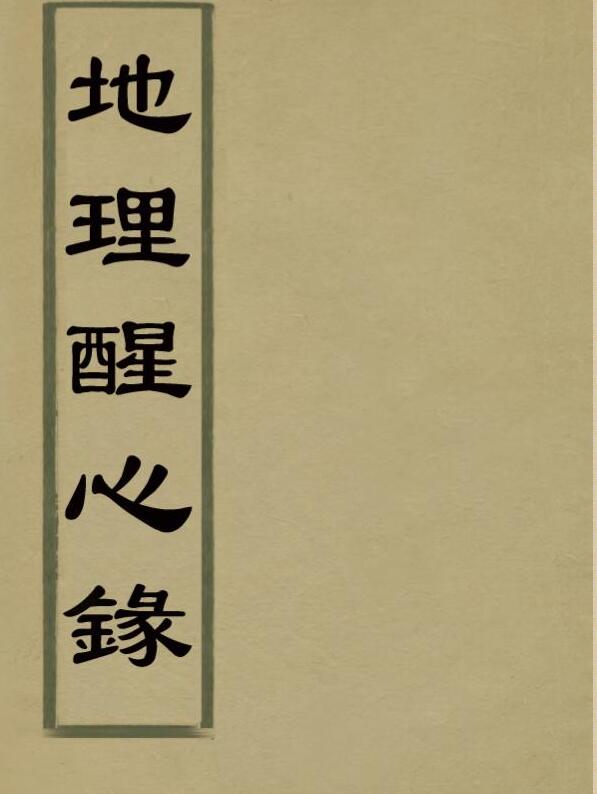 地理醒心錄